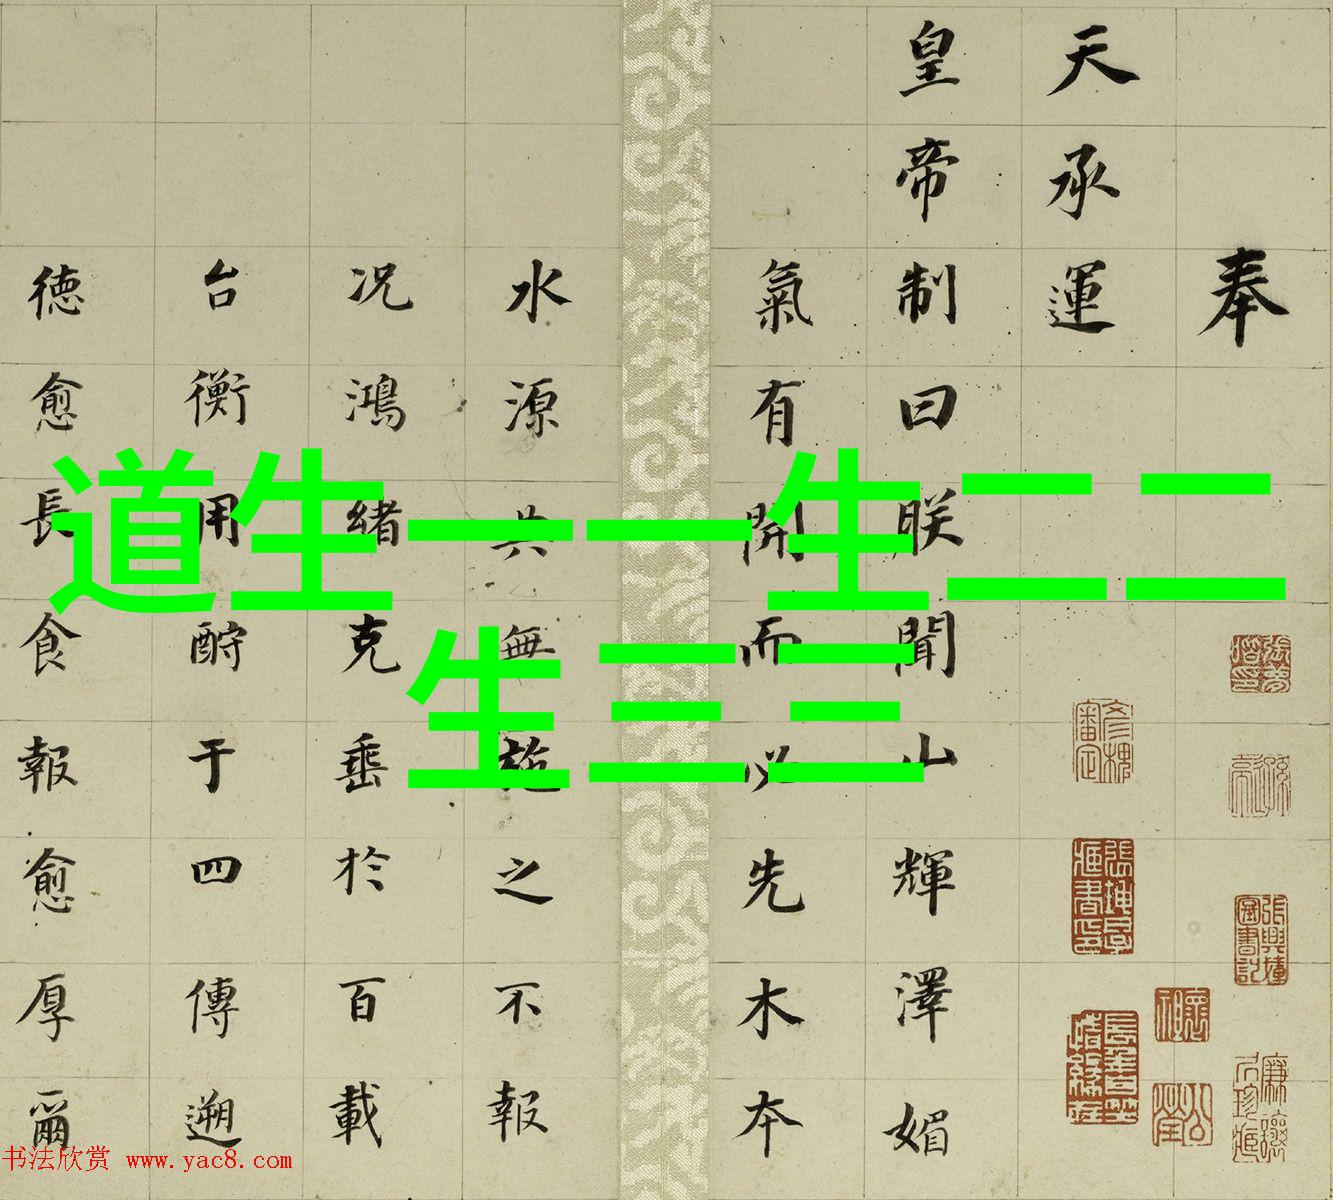 奉
天承運
皇帝制曰朕聞山輝澤媚
氣有開而必先木本
水源共無施之不報
况鴻緒克垂於百載
台衡用酧于四傳遡
德愈長食報愈厚爾
道生一一生二二
生三三
书法欣赏 www.yac8.com